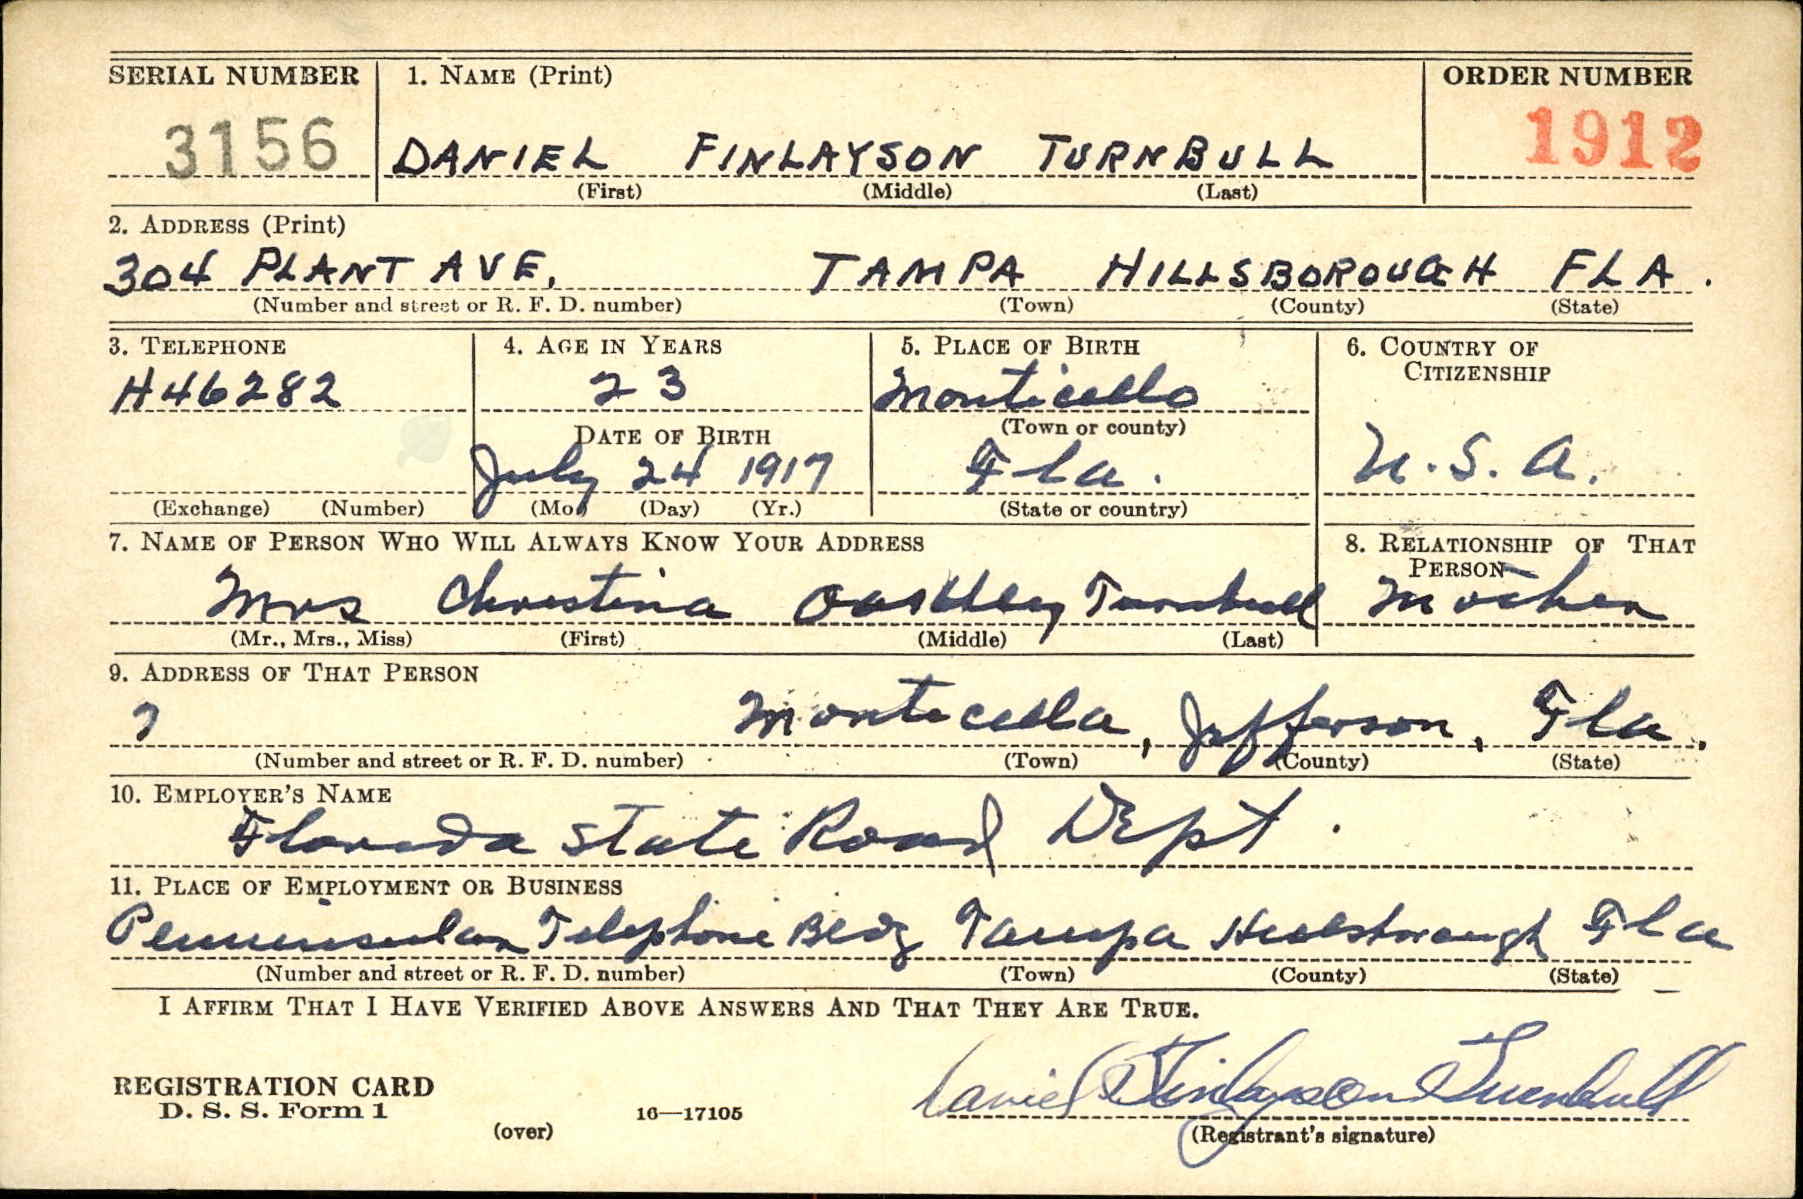 SERIAL NUMBER 1. NAME (Print) ORDER NUMBER
3156 DANIEL FINLAYSON TURNBULL 1912
(First) (Middle) (Last)
2. ADDRESS (Print)
304 PLANT AVE, TAMPA HILLSBOROUGH FLA.
(Number and street or R. F. D. number) (Town) (County) (State)
3. TELEPHONE 4. AGE IN YEARS 5. PLACE OF BIRTH 6. COUNTRY OF
CITIZENSHIP
H46282 23 Monticello
(Town or county)
DATE OF BIRTH
July 24 1917 Fla. U.S.A.
(Exchange) (Number) (Mo.) (Day) (Yr.) (State or country)
7. NAME OF PERSON WHO WILL ALWAYS KNOW YOUR ADDRESS 8. RELATIONSHIP OF THAT
PERSON
Mrs Christina Turnbull Mother
(Mr., Mrs., Miss) (First) (Middle) (Last)
9. ADDRESS OF THAT PERSON
Monticello, Jefferson, Fla.
(Number and street or R. F. D. number) (Town) (County) (State)
10. EMPLOYER'S NAME
Florida State Road Dept.
11. PLACE OF EMPLOYMENT OR BUSINESS
Penninsular Telephone Bldg Tampa Hillsborough Fla
(Number and street or R. F. D. number) (Town) (County) (State)
I AFFIRM THAT I HAVE VERIFIED ABOVE ANSWERS AND THAT THEY ARE TRUE.
Daniel Finlayson Turnbull
REGISTRATION CARD
D. S. S. Form 1 16—17105
(over) (Registrant's signature)